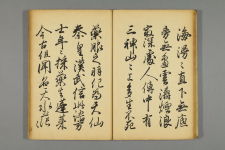 海漫々直下無底
旁無邊雲濤煙浪
最深處人傳中有
三神山々上多生不死
藥服之羽化為天仙
秦皇漢武信此語方
士年々採藥去蓬萊
今古但聞名